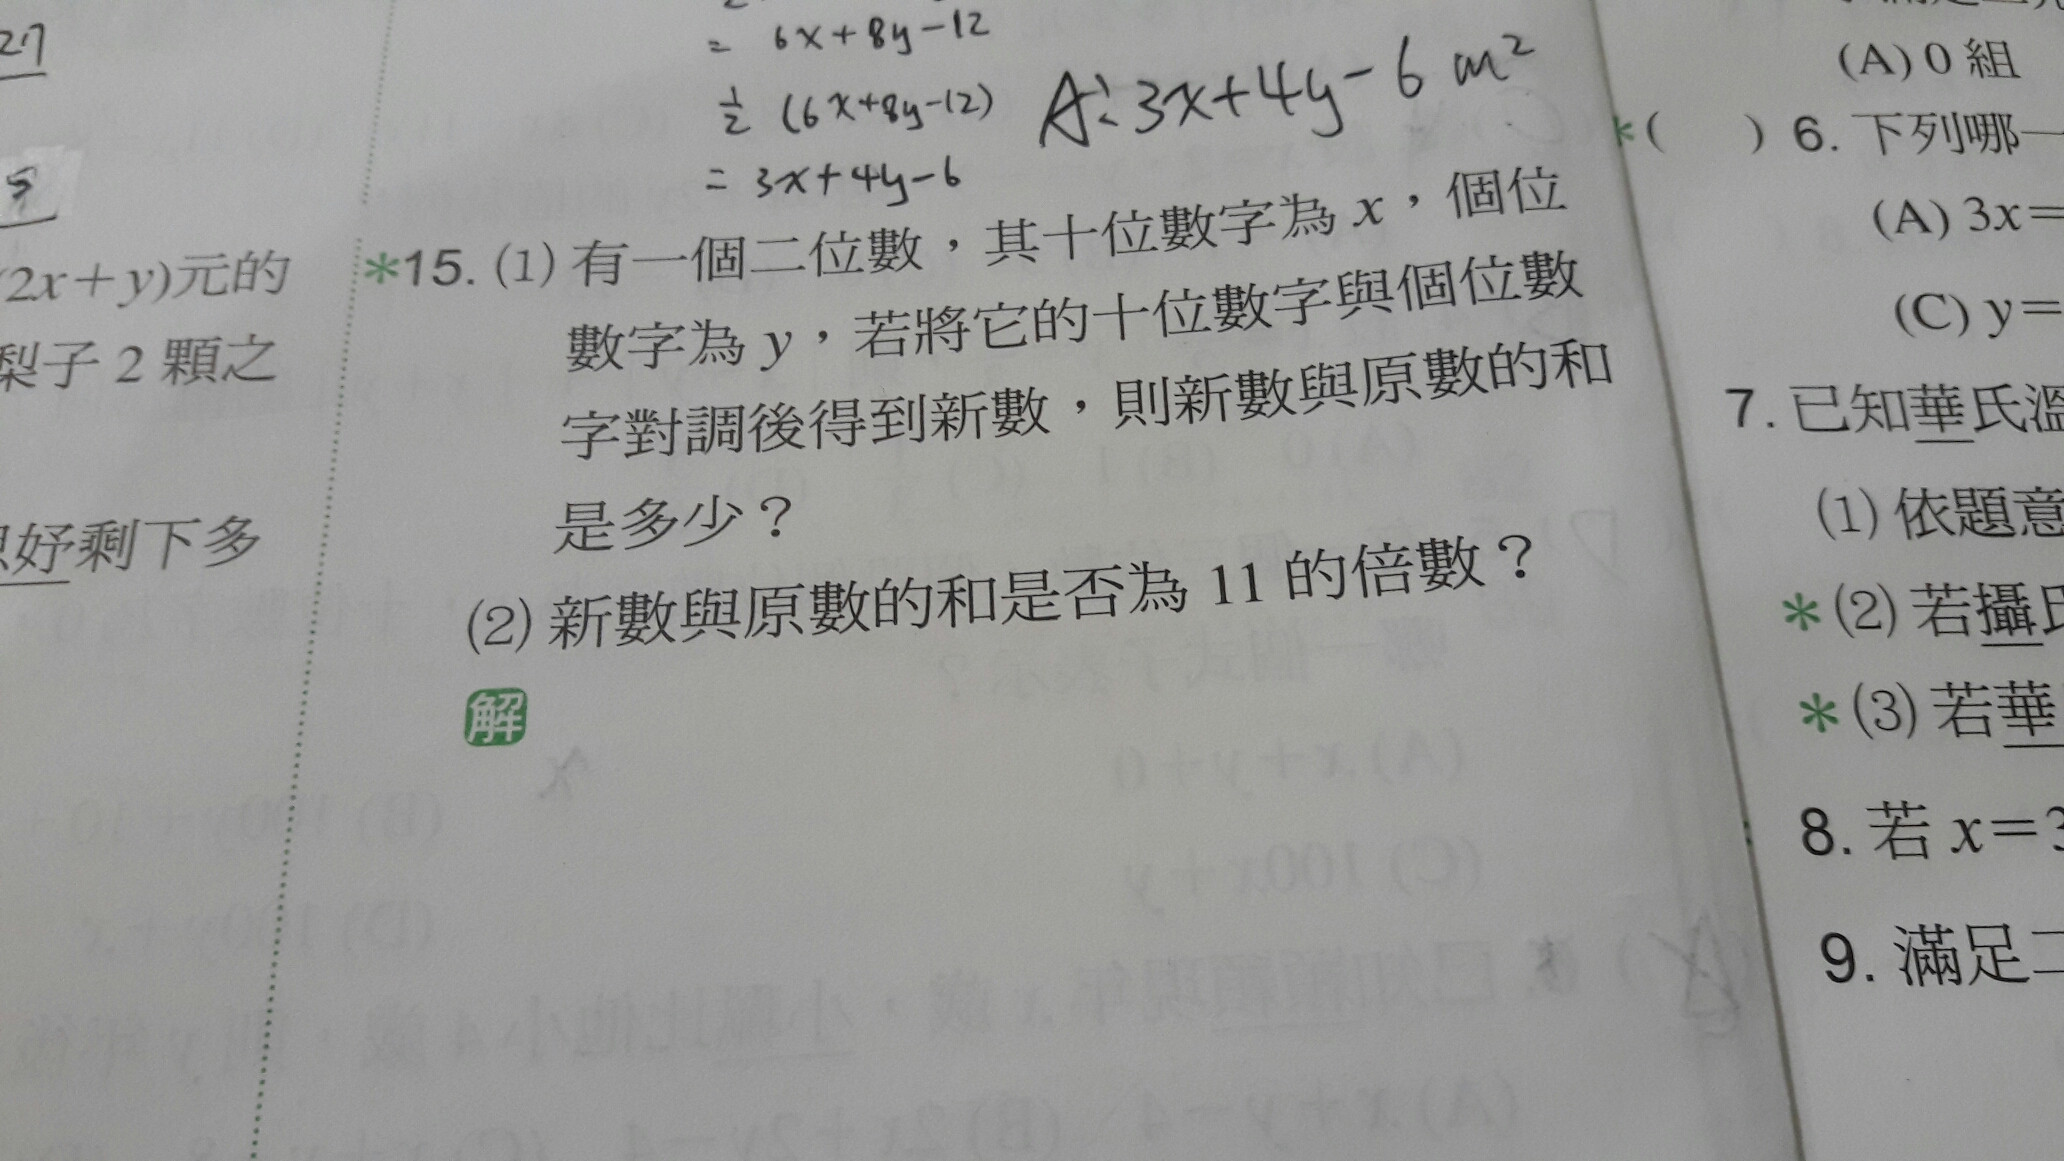 27
= 6x+8y-12
1/2 (6x+8y-12)
= 3x+4y-6
A: 3x+4y-6 m²
(2x+y)元的
梨子 2 顆之
妤剩下多
*15. (1) 有一個二位數，其十位數字為 x，個位
數字為 y，若將它的十位數字與個位數
字對調後得到新數，則新數與原數的和
是多少？
(2) 新數與原數的和是否為 11 的倍數？
解
(A) 0 組
*( ) 6. 下列哪一
(A) 3x=
(C) y=
7. 已知華氏溫
(1) 依題意
*(2) 若攝氏
*(3) 若華
8. 若 x=3
9. 滿足二